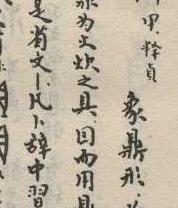 甲 粹 貞 象鼎形
為火炊之具因而用
是省文卜凡卜辭中習